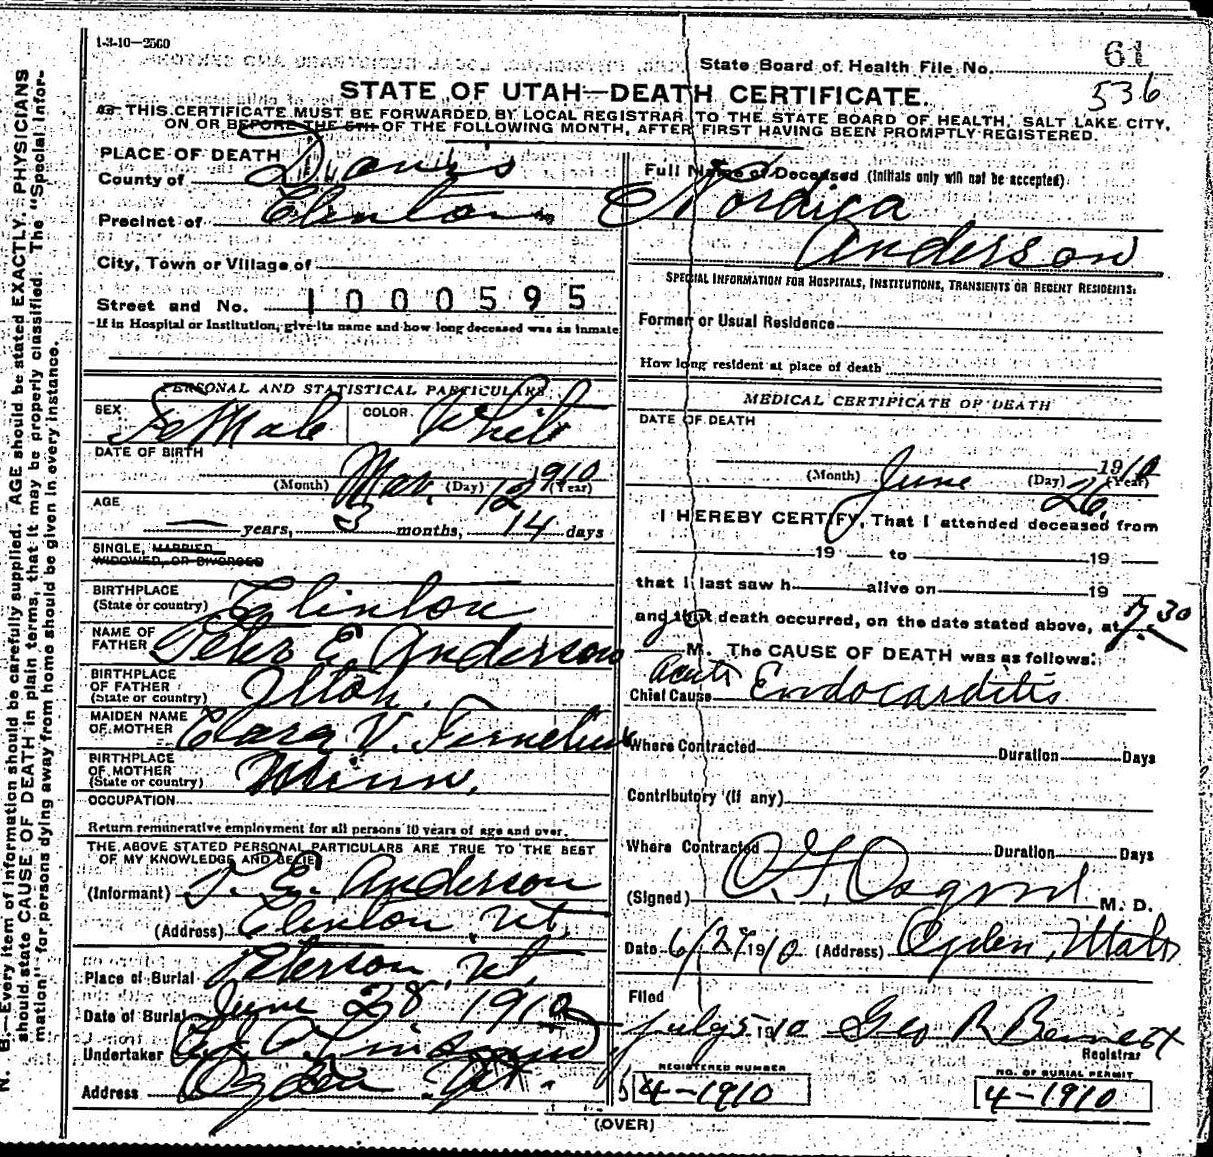 1-3-10—2560
State Board of Health File No. 61
536
STATE OF UTAH—DEATH CERTIFICATE.
THIS CERTIFICATE MUST BE FORWARDED BY LOCAL REGISTRAR TO THE STATE BOARD OF HEALTH, SALT LAKE CITY,
ON OR BEFORE THE 5TH OF THE FOLLOWING MONTH, AFTER FIRST HAVING BEEN PROMPTLY REGISTERED.
PLACE OF DEATH
County of Davis
Precinct of Clinton
City, Town or Village of
Street and No. 1000595
If in Hospital or Institution, give its name and how long deceased was an inmate
Full Name of Deceased (Initials only will not be accepted)
Nordica
Anderson
SPECIAL INFORMATION FOR HOSPITALS, INSTITUTIONS, TRANSIENTS OR RECENT RESIDENTS:
Former or Usual Residence
How long resident at place of death
PERSONAL AND STATISTICAL PARTICULARS
SEX Female COLOR White
DATE OF BIRTH
(Month) Mar. (Day) 12 1910 (Year)
AGE
— years, 3 months, 14 days
SINGLE, MARRIED,
WIDOWED, OR DIVORCED
BIRTHPLACE
(State or country) Clinton
NAME OF
FATHER Peter E. Anderson
BIRTHPLACE
OF FATHER
(State or country) Utah.
MAIDEN NAME
OF MOTHER Clara V.
BIRTHPLACE
OF MOTHER
(State or country) Minn.
OCCUPATION
Return remunerative employment for all persons 10 years of age and over.
THE ABOVE STATED PERSONAL PARTICULARS ARE TRUE TO THE BEST
OF MY KNOWLEDGE AND BELIEF
(Informant) P. E. Anderson
(Address) Clinton, Ut.
Place of Burial Peterson, Ut.
Date of Burial June 28 1910
Undertaker
Address Ogden Ut.
MEDICAL CERTIFICATE OF DEATH
DATE OF DEATH
(Month) June (Day) 26, 1910 (Year)
I HEREBY CERTIFY, That I attended deceased from
19 to 19
that I last saw h alive on 19
and that death occurred, on the date stated above, at 7 30
M. The CAUSE OF DEATH was as follows:
Chief Cause Acute Endocarditis
Where Contracted Duration Days
Contributory (if any)
Where Contracted Duration Days
(Signed) O. F. Osgood M. D.
Date 6/27 1910 (Address) Ogden, Utah
Filed
July 5 1910 Geo R Bennett
Registrar
REGISTERED NUMBER
4-1910
NO. OF BURIAL PERMIT
4-1910
(OVER)
N. B.—Every item of information should be carefully supplied. AGE should be stated EXACTLY. PHYSICIANS
should state CAUSE OF DEATH in plain terms, that it may be properly classified. The "Special Infor-
mation" for persons dying away from home should be given in every instance.